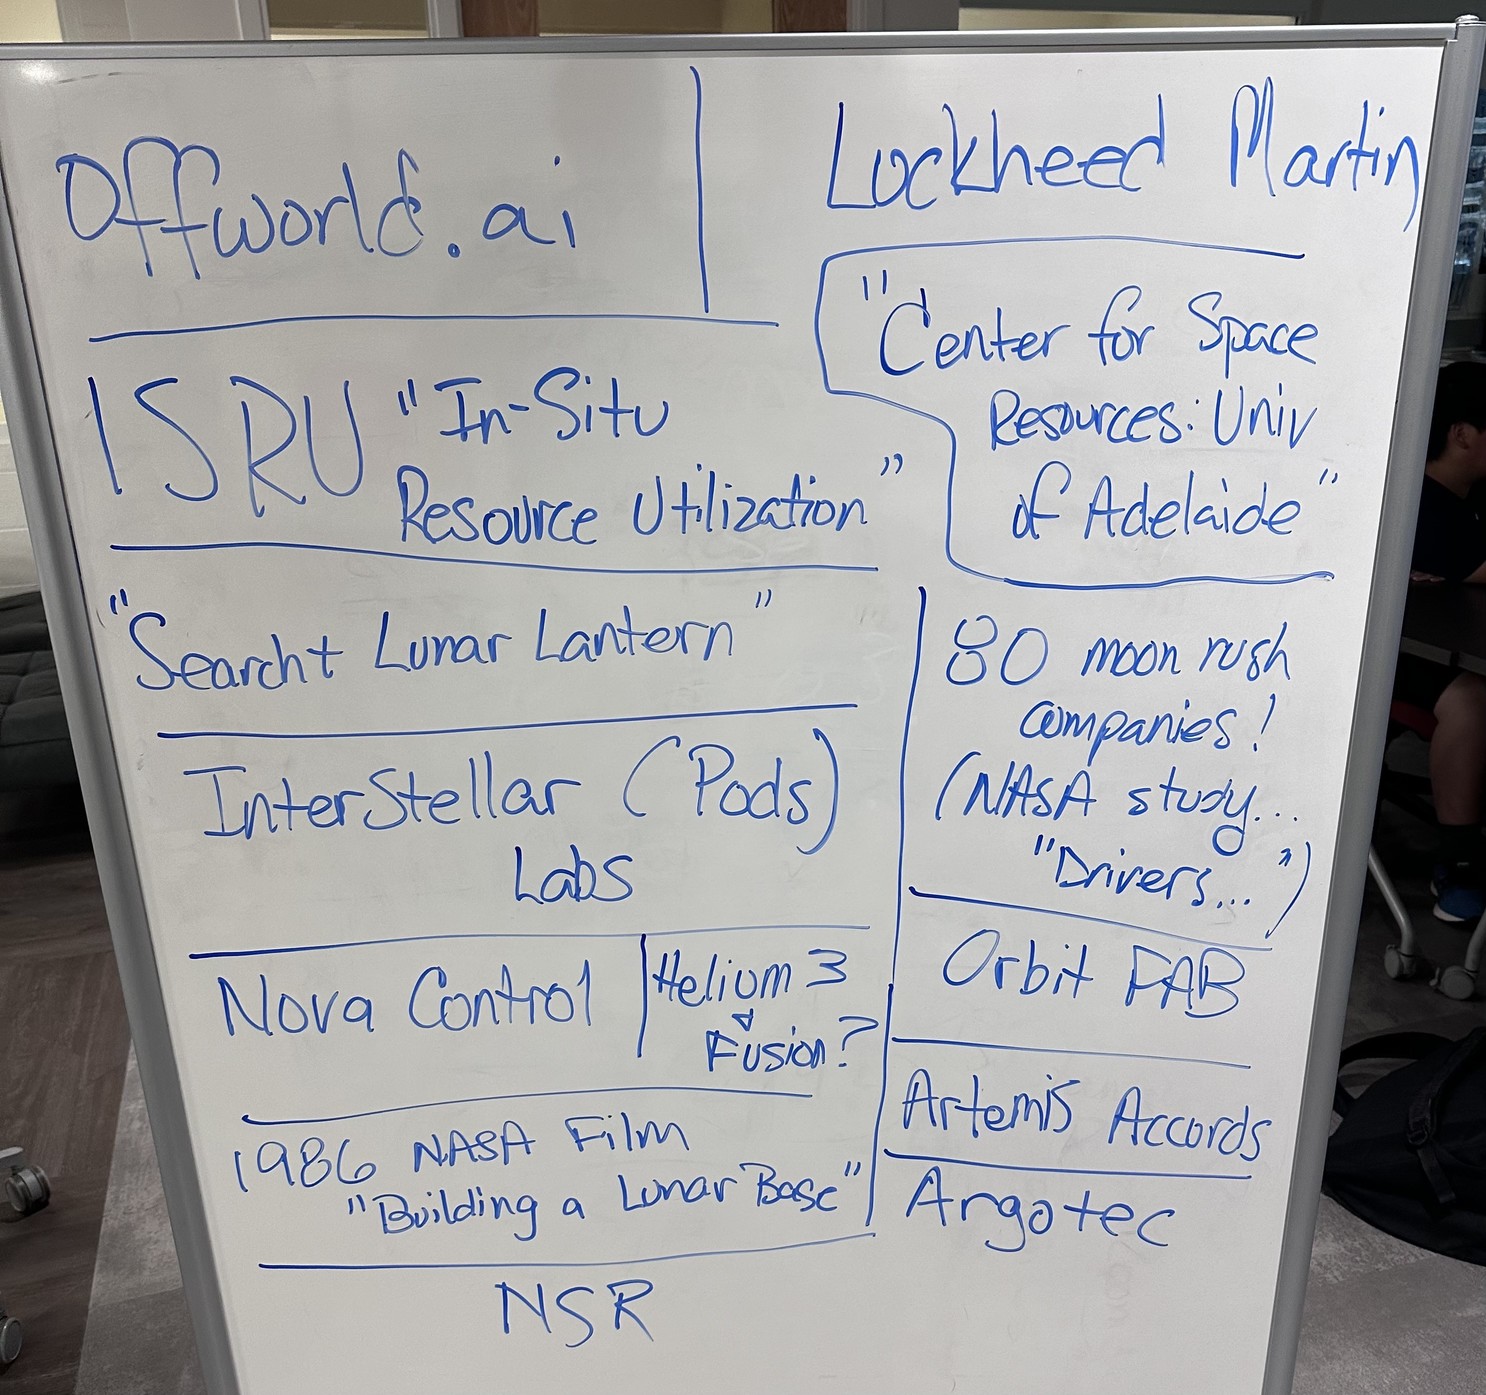 Offworld.ai
Lockheed Martin
"Center for Space
Resources: Univ
of Adelaide"
ISRU "In-Situ
Resource Utilization"
"Search+ Lunar Lantern"
80 moon rush
companies!
(NASA study...
"Drivers...")
InterStellar (Pods)
Labs
Nova Control
Helium 3
Fusion?
Orbit FAB
1986 NASA Film
"Building a Lunar Base"
Artemis Accords
Argotec
NSR